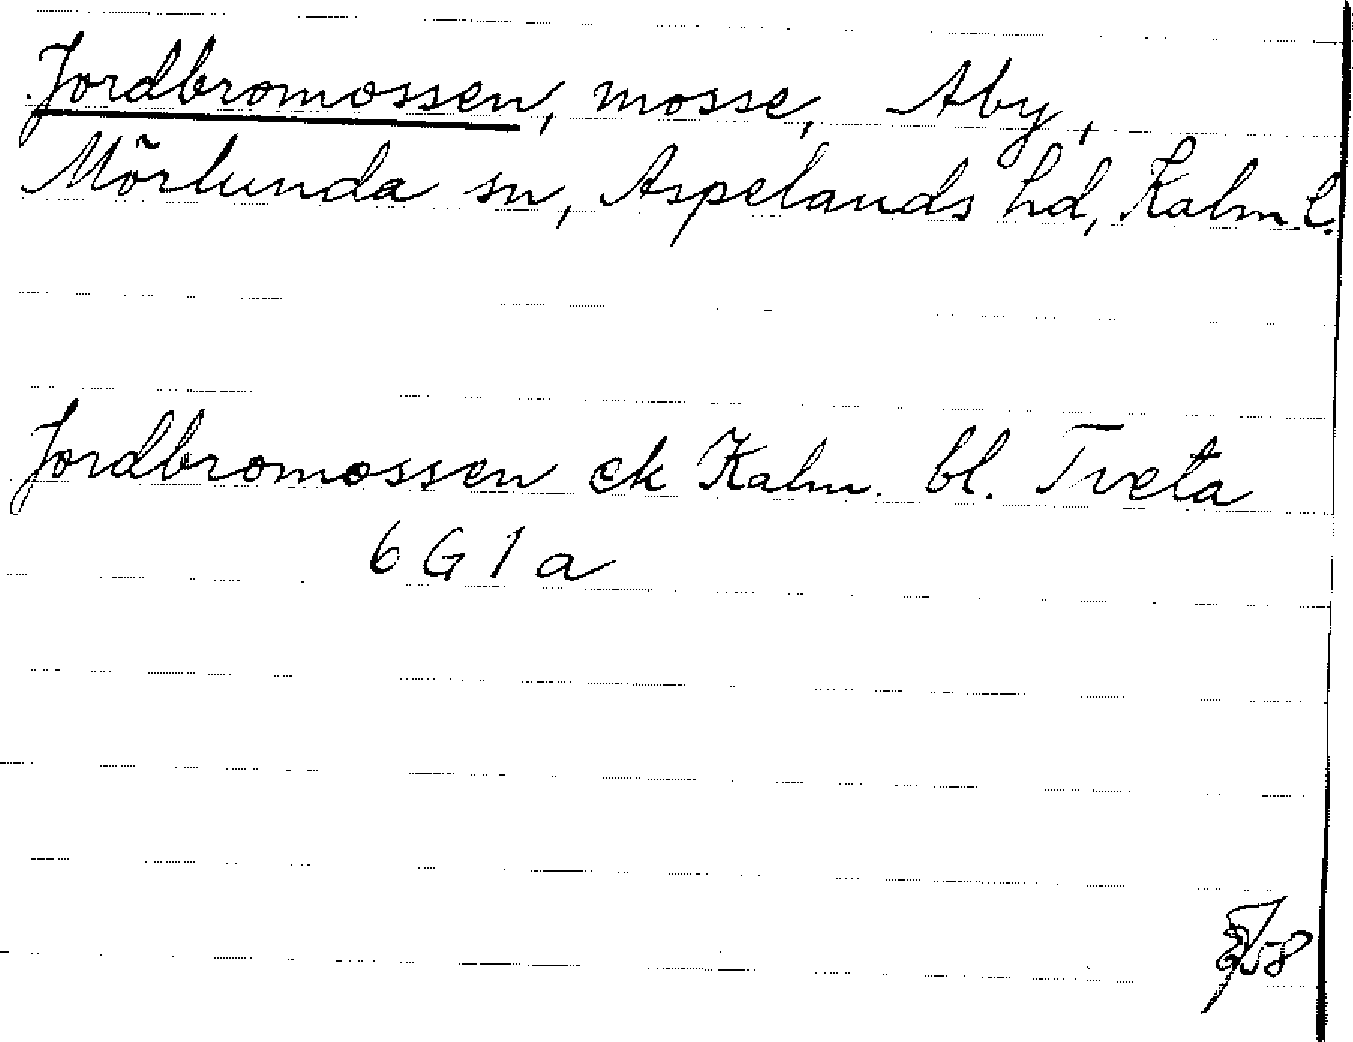 Jordbromossen, mosse, Aby,
Mörlunda sn, Aspelands hd, Kalm l.
Jordbromossen ek Kalm. bl. Tveta
6 G 1 a